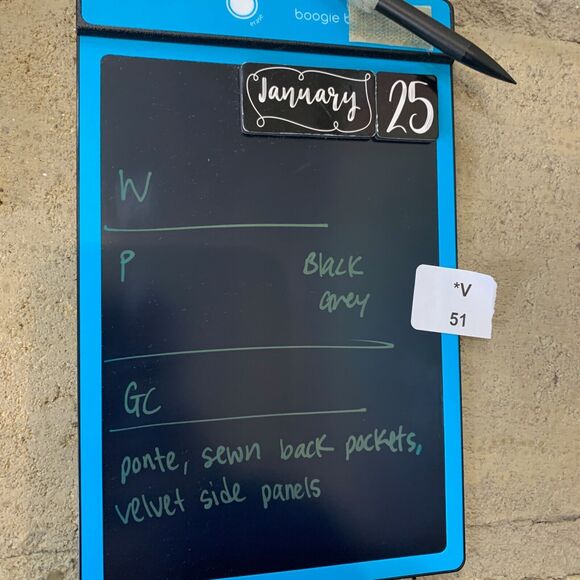 erase
boogie b
January 25
W
P
Black
Grey
*V
51
GC
ponte, sewn back pockets,
velvet side panels